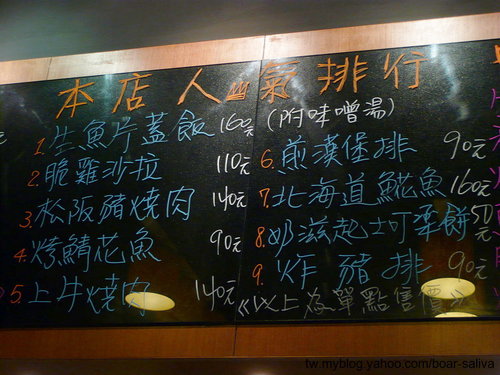 本店人氣排行
1.生魚片蓋飯 160元 (附味噌湯)
2.脆雞沙拉 110元
3.松阪豬燒肉 140元
4.烤鯖花魚 90元
5.上牛燒肉 140元
6.煎漢堡排 90元
7.北海道鯤魚 160元
8.奶滋起士可樂餅 50元
9.炸豬排 90元
《以上為單點售價》
tw.myblog.yahoo.com/boar-saliva